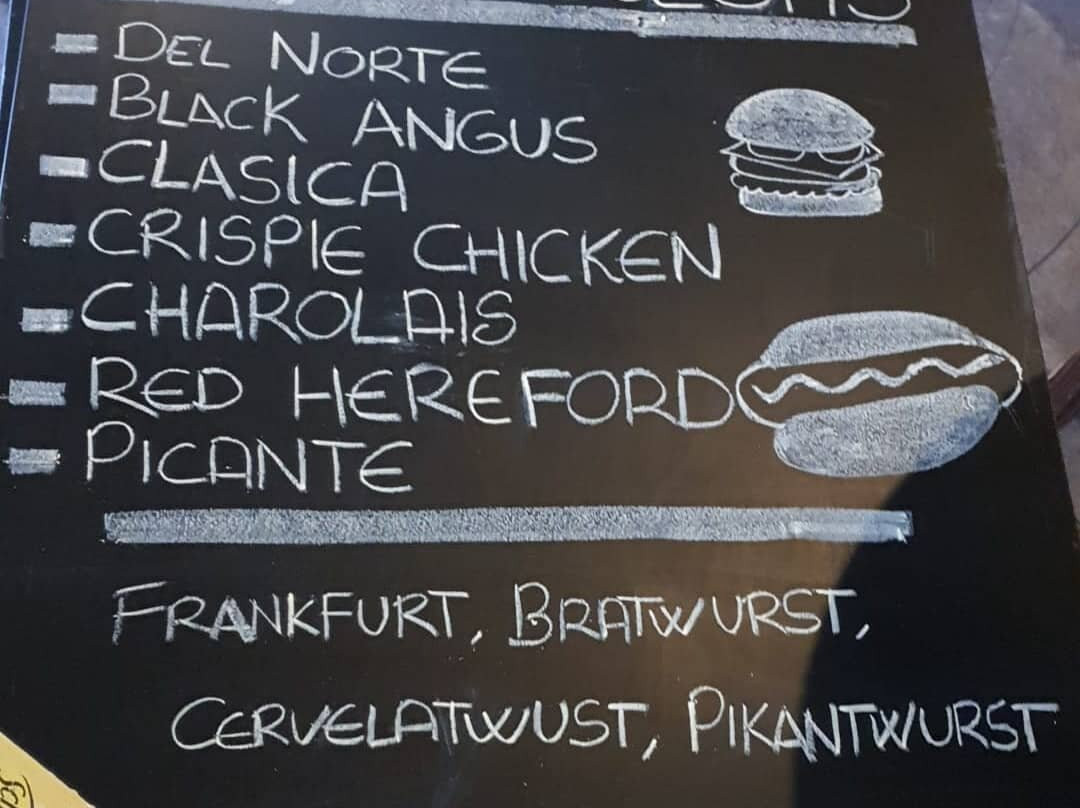 DEL NORTE
BLACK ANGUS
CLASICA
CRISPIE CHICKEN
CHAROLAIS
RED HEREFORD
PICANTE
FRANKFURT, BRATWURST,
CERVELATWUST, PIKANTWURST